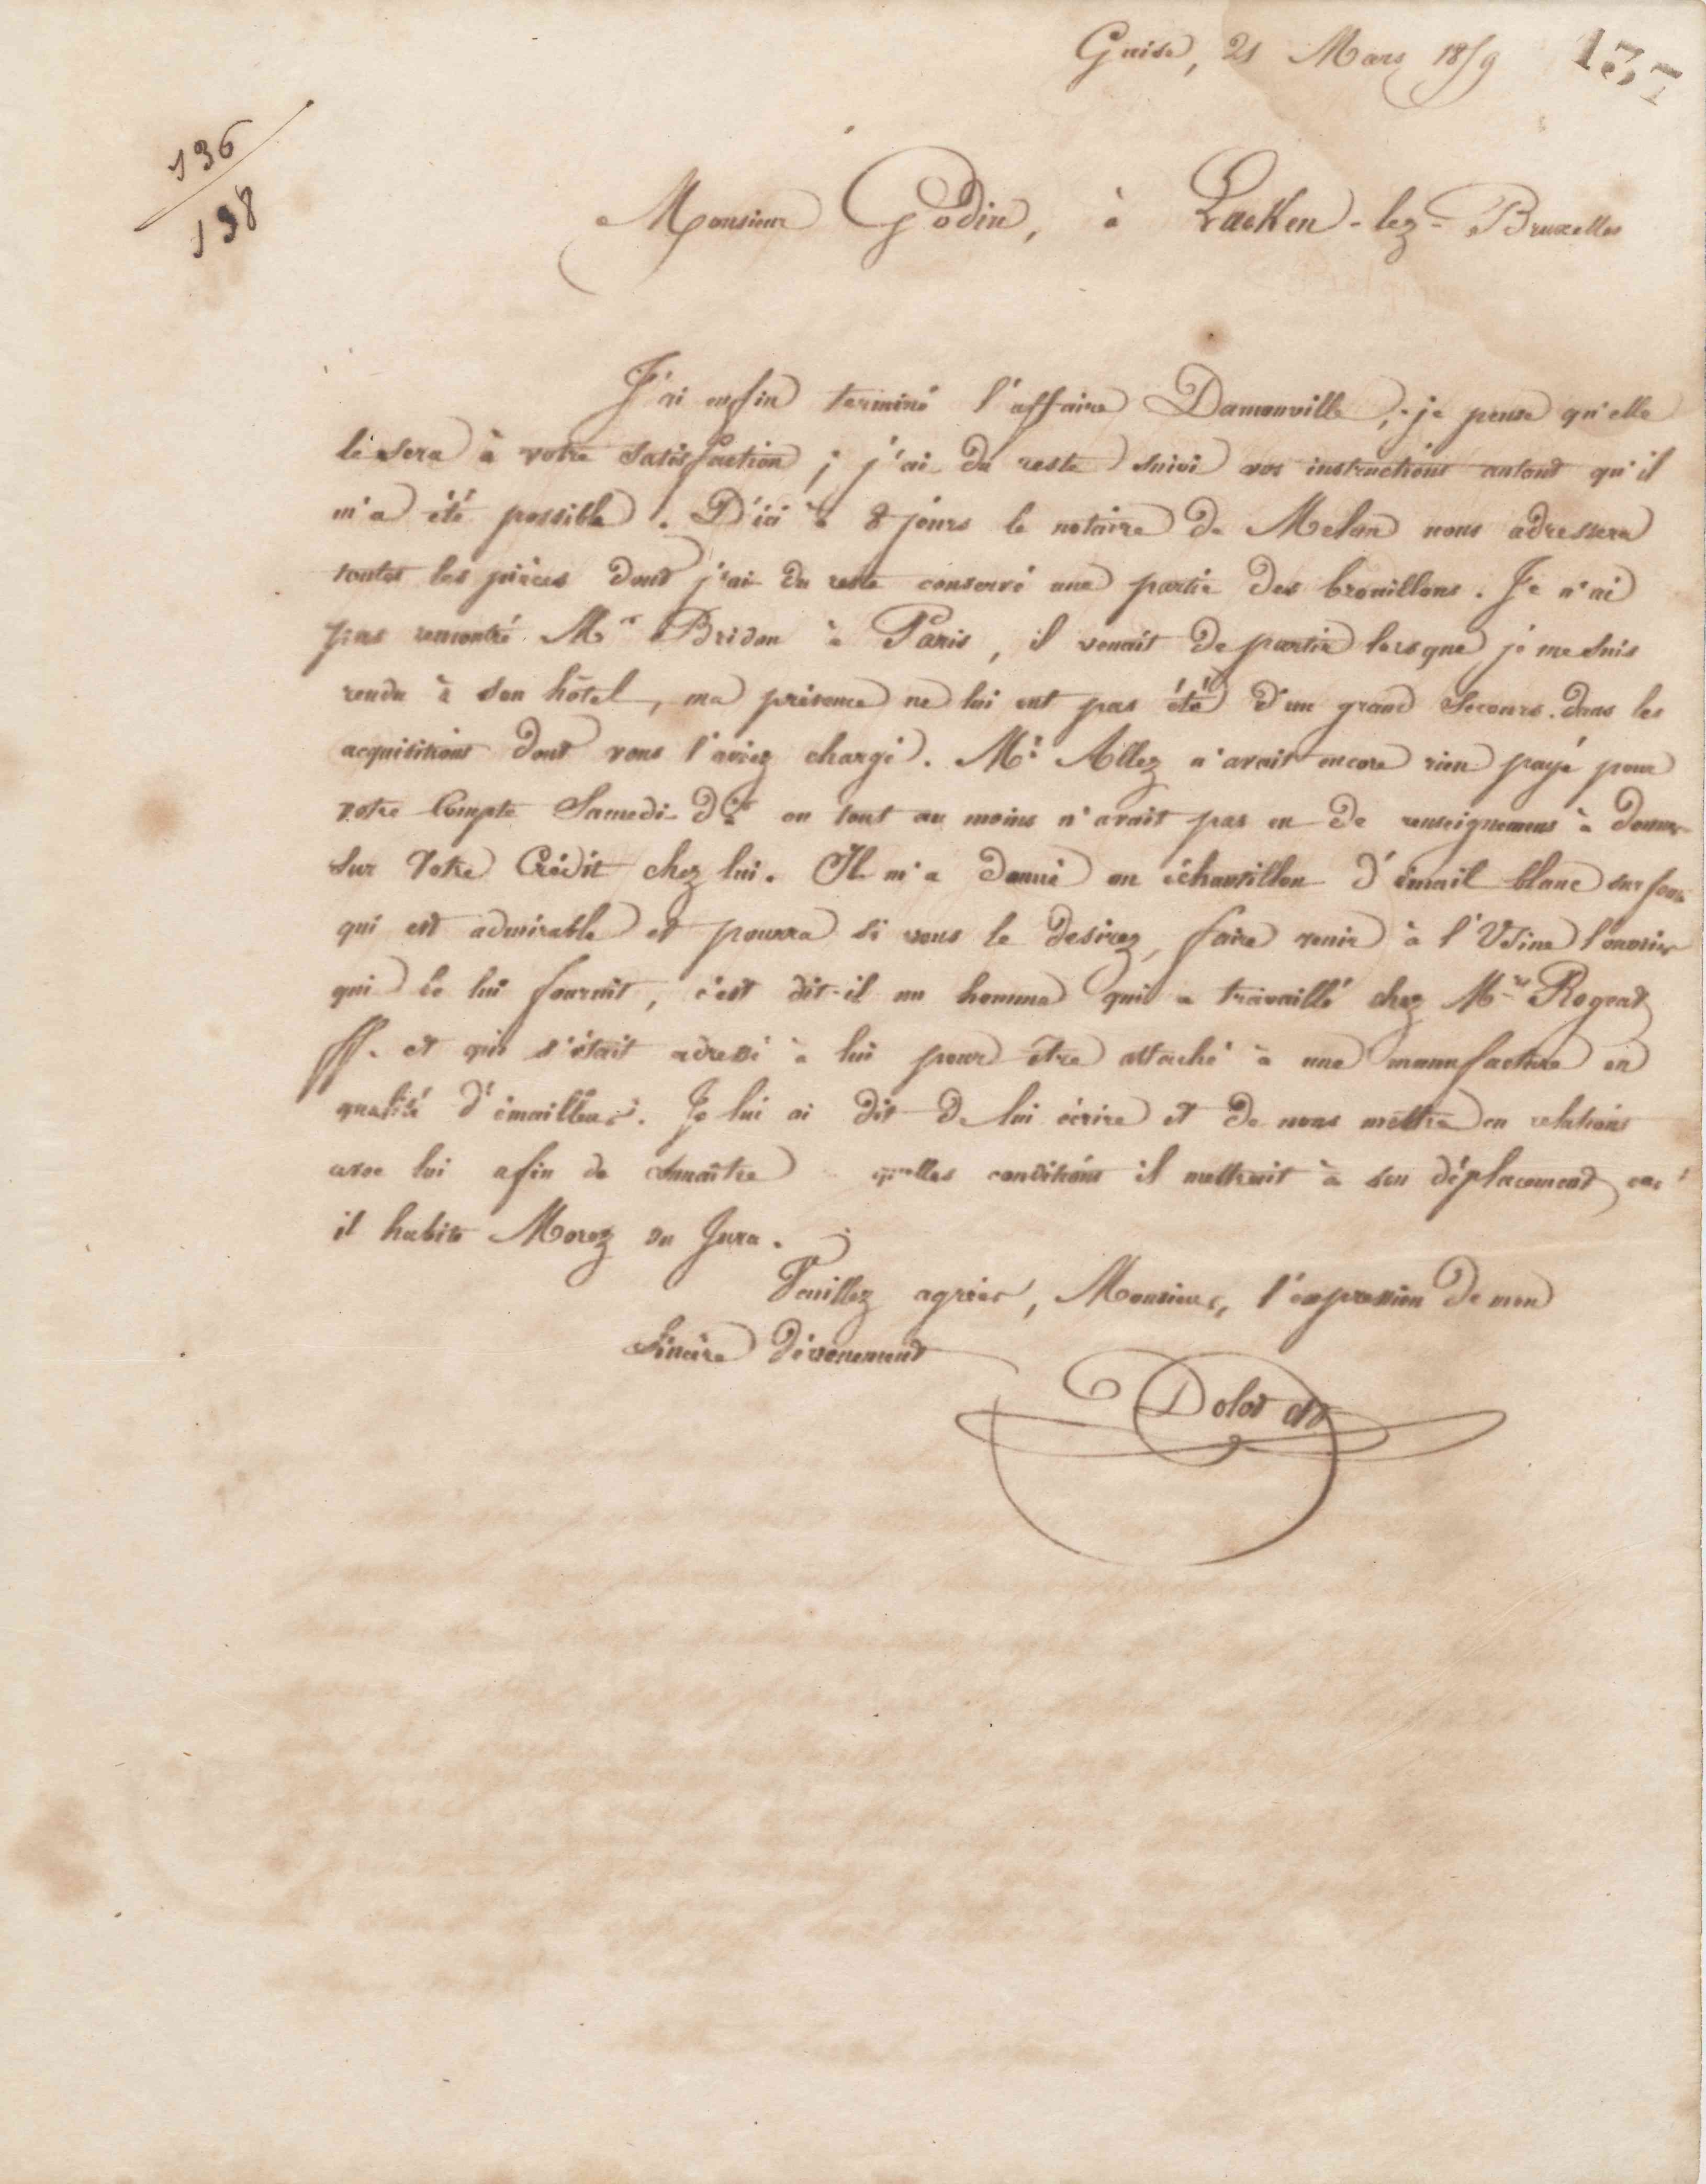 Guise, 21 Mars 1859
137
136
138
Monsieur Godin, à Laeken-lez-Bruxelles
J'ai enfin terminé l'affaire Damonville, je pense qu'elle
le sera à votre satisfaction ; j'ai du reste suivi vos instructions autant qu'il
m'a été possible. D'ici à 8 jours le notaire de Melun nous adressera
toutes les pièces dont j'ai du reste conservé une partie des brouillons. Je n'ai
pas rencontré Mr Bridon à Paris, il venait de partir lorsque je me suis
rendu à son hôtel, ma présence ne lui eut pas été d'un grand secours dans les
acquisitions dont vous l'aviez chargé. Mr Allez n'avait encore rien payé pour
votre Compte Samedi dr ou tout au moins n'avait pas eu de renseignemens à donner
sur Votre Crédit chez lui. Il m'a donné un échantillon d'émail blanc sur fonte
qui est admirable et pourra si vous le desirez, faire venir à l'Usine l'ouvrier
qui le lui fournit, c'est dit-il un homme qui a travaillé chez Mrs Rogeat
ff. et qui s'était adressé à lui pour être attaché à une manufacture en
qualité d'émailleur. Je lui ai dit de lui écrire et de nous mettre en relations
avec lui afin de connaître quelles conditions il mettrait à son déplacement car
il habite Morez du Jura.
Veuillez agréer, Monsieur, l'expression de mon
sincère dévouement
Dolot